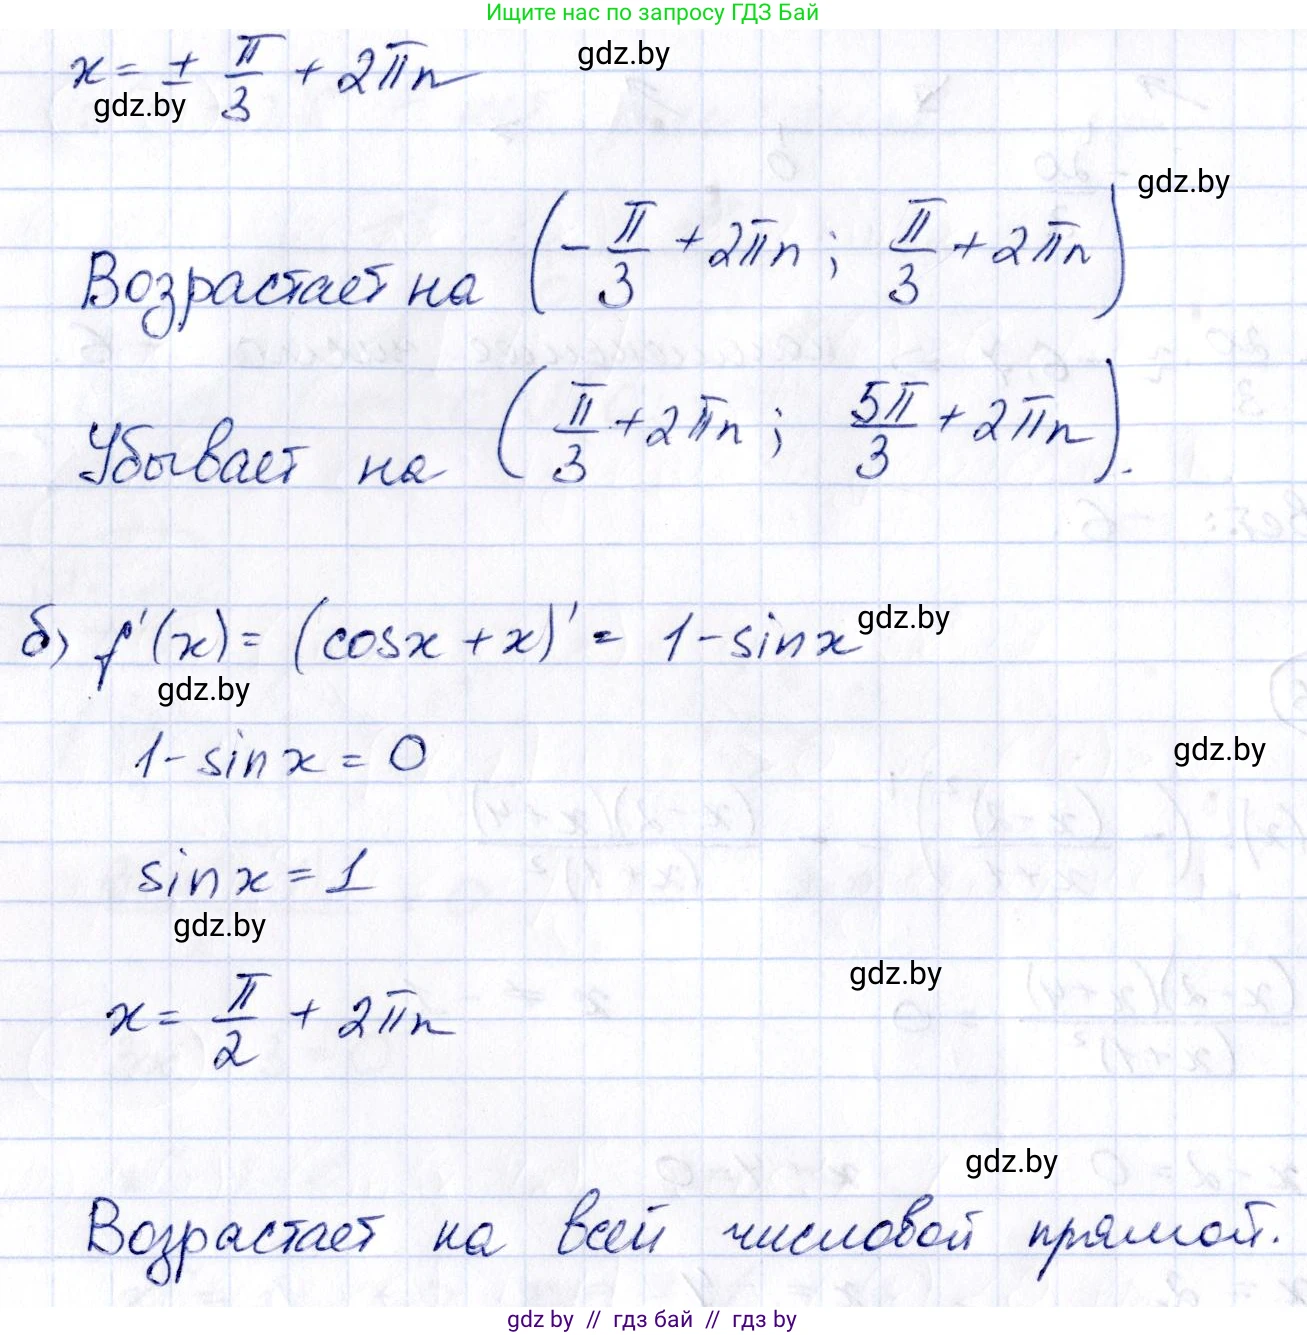 Ищите нас по запросу ГДЗ Бай
x = ± π/3 + 2πn
gdz.by
gdz.by
gdz.by
Возрастает на (-π/3 + 2πn ; π/3 + 2πn)
Убывает на (π/3 + 2πn ; 5π/3 + 2πn).
б) f'(x) = (cosx + x)' = 1 - sinx
gdz.by
gdz.by
1 - sinx = 0
gdz.by
sinx = 1
gdz.by
gdz.by
x = π/2 + 2πn
gdz.by
Возрастает на всей числовой прямой.
gdz by // гдз бай // гдз by